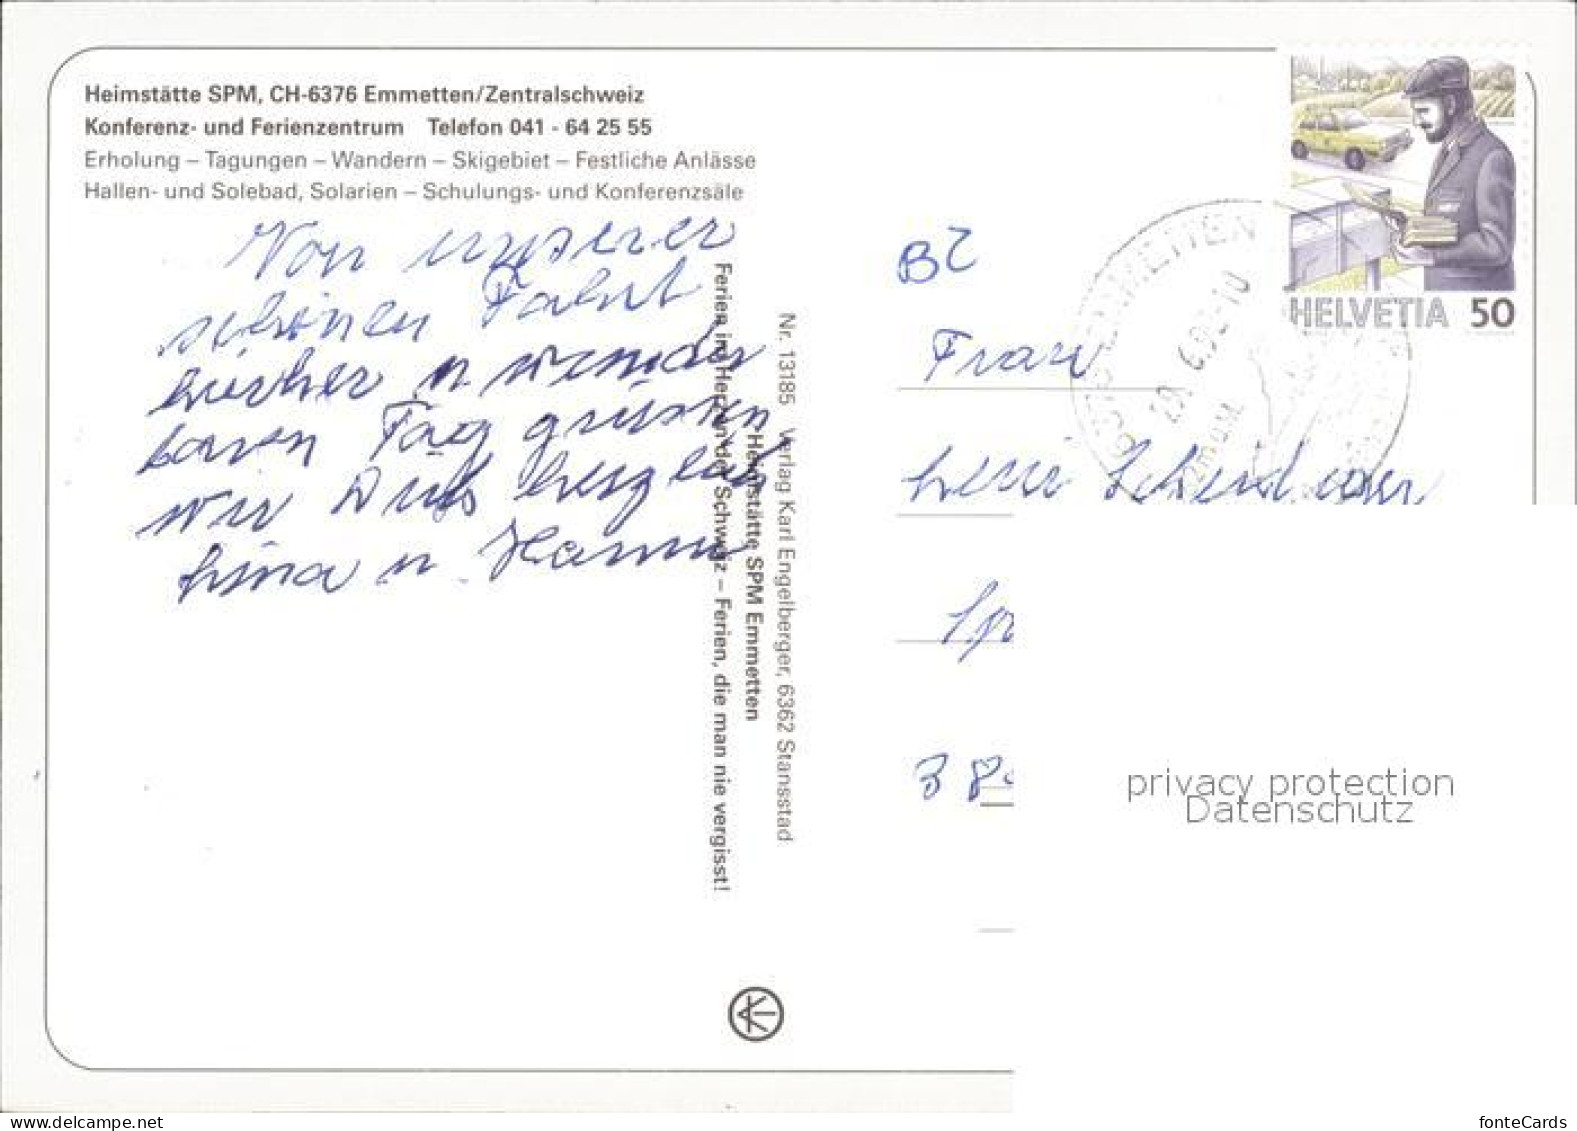 Heimstätte SPM, CH-6376 Emmetten/Zentralschweiz
Konferenz- und Ferienzentrum Telefon 041 - 64 25 55
Erholung – Tagungen – Wandern – Skigebiet – Festliche Anlässe
Hallen- und Solebad, Solarien – Schulungs- und Konferenzsäle
Von unserer
schönen Fahrt
hierher u wunder
baren Tag grüssen
wir Dich herzlich
Lina u. Hanni
Ferien im Herzen der Schweiz – Ferien, die man nie vergisst!
Heimstätte SPM Emmetten
Nr. 13185 Verlag Karl Engelberger, 6362 Stansstad
HELVETIA 50
EMMETTEN
BZ
Frau
privacy protection
Datenschutz
www.delcampe.net
fonteCards